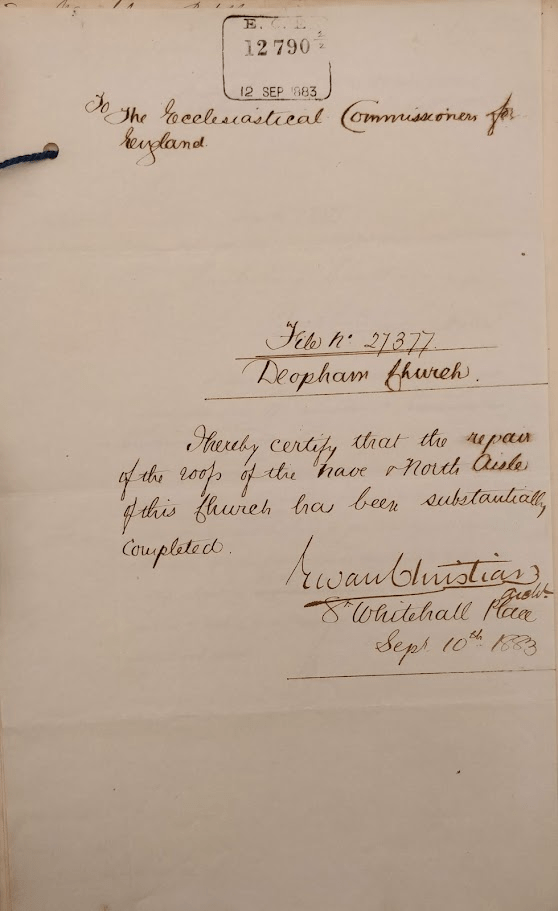 E. C. E
12790 1/2
12 SEP 1883
To The Ecclesiastical Commissioners for
England
File No 27377
Deopham Church.
I hereby certify that the repair
of the roofs of the Nave & North Aisle
of this Church has been substantially
completed.
Ewan Christian
Archt
8A Whitehall Place
Sept 10th 1883